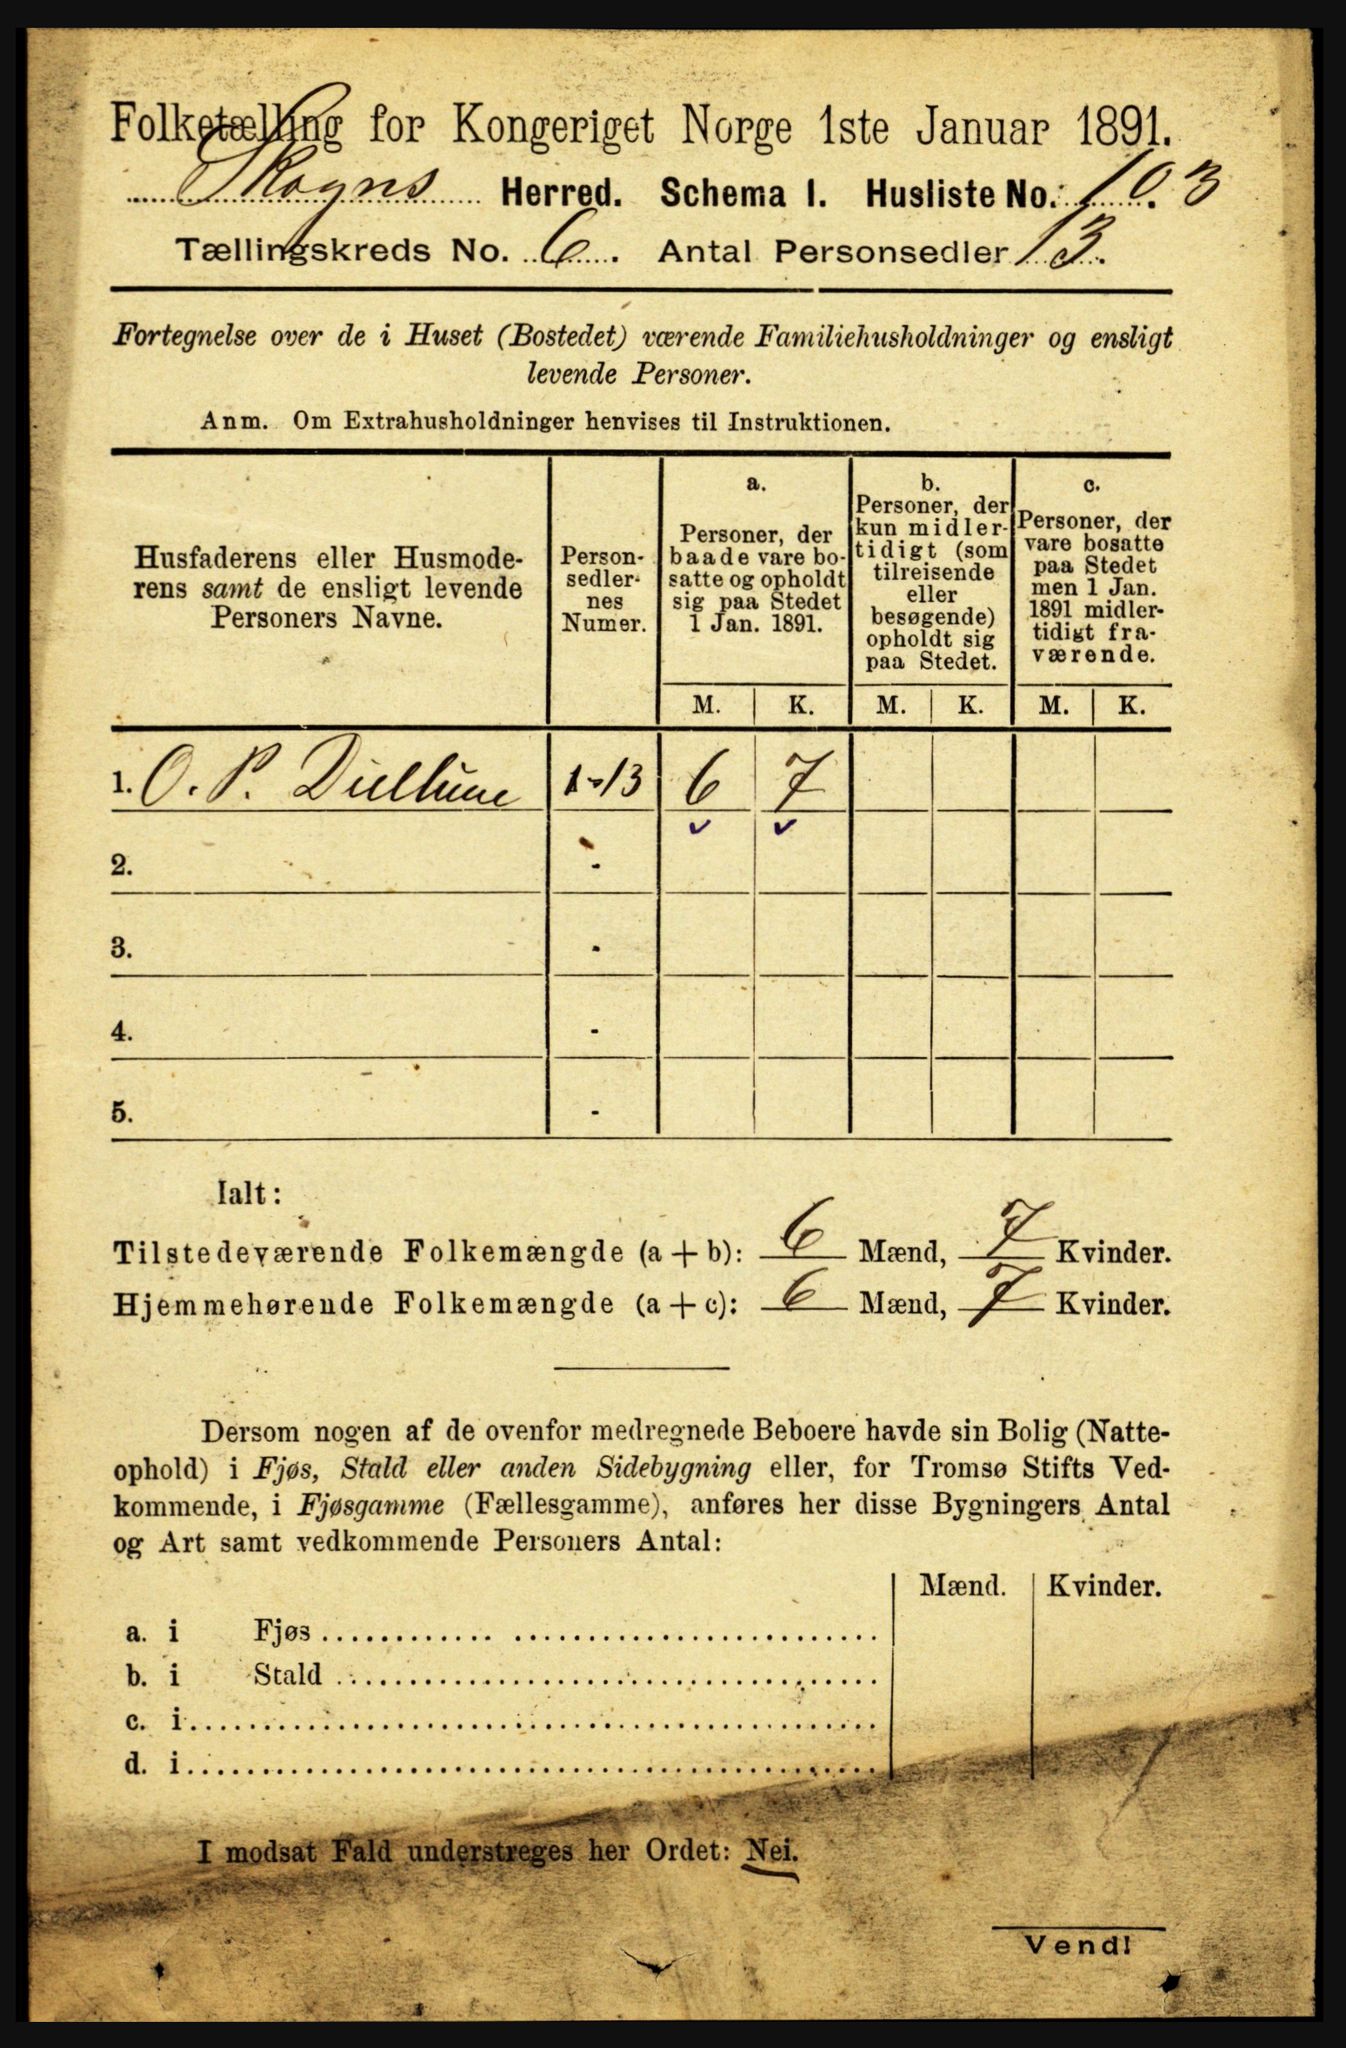 Folketælling for Kongeriget Norge 1ste Januar 1891.
Skogns Herred. Schema I. Husliste No. 103
Tællingskreds No. 6. Antal Personsedler 13.
Fortegnelse over de i Huset (Bostedet) værende Familiehusholdninger og ensligt
levende Personer.
Anm. Om Extrahusholdninger henvises til Instruktionen.
Husfaderens eller Husmode-
rens samt de ensligt levende
Personers Navne.
Person-
sedler-
nes
Numer.
a.
Personer, der
baade vare bo-
satte og opholdt
sig paa Stedet
1 Jan. 1891.
b.
Personer, der
kun midler-
tidigt (som
tilreisende
eller
besøgende)
opholdt sig
paa Stedet.
c.
Personer, der
vare bosatte
paa Stedet
men 1 Jan.
1891 midler-
tidigt fra-
værende.
M. K. M. K. M. K.
1. O. P. 1-13 6 7
2. -
3. -
4. -
5. -
Ialt:
Tilstedeværende Folkemængde (a + b): 6 Mænd, 7 Kvinder.
Hjemmehørende Folkemængde (a + c): 6 Mænd, 7 Kvinder.
Dersom nogen af de ovenfor medregnede Beboere havde sin Bolig (Natte-
ophold) i Fjøs, Stald eller anden Sidebygning eller, for Tromsø Stifts Ved-
kommende, i Fjøsgamme (Fællesgamme), anføres her disse Bygningers Antal
og Art samt vedkommende Personers Antal:
Mænd. Kvinder.
a. i Fjøs
b. i Stald
c. i
d. i
I modsat Fald understreges her Ordet: Nei.
Vend!